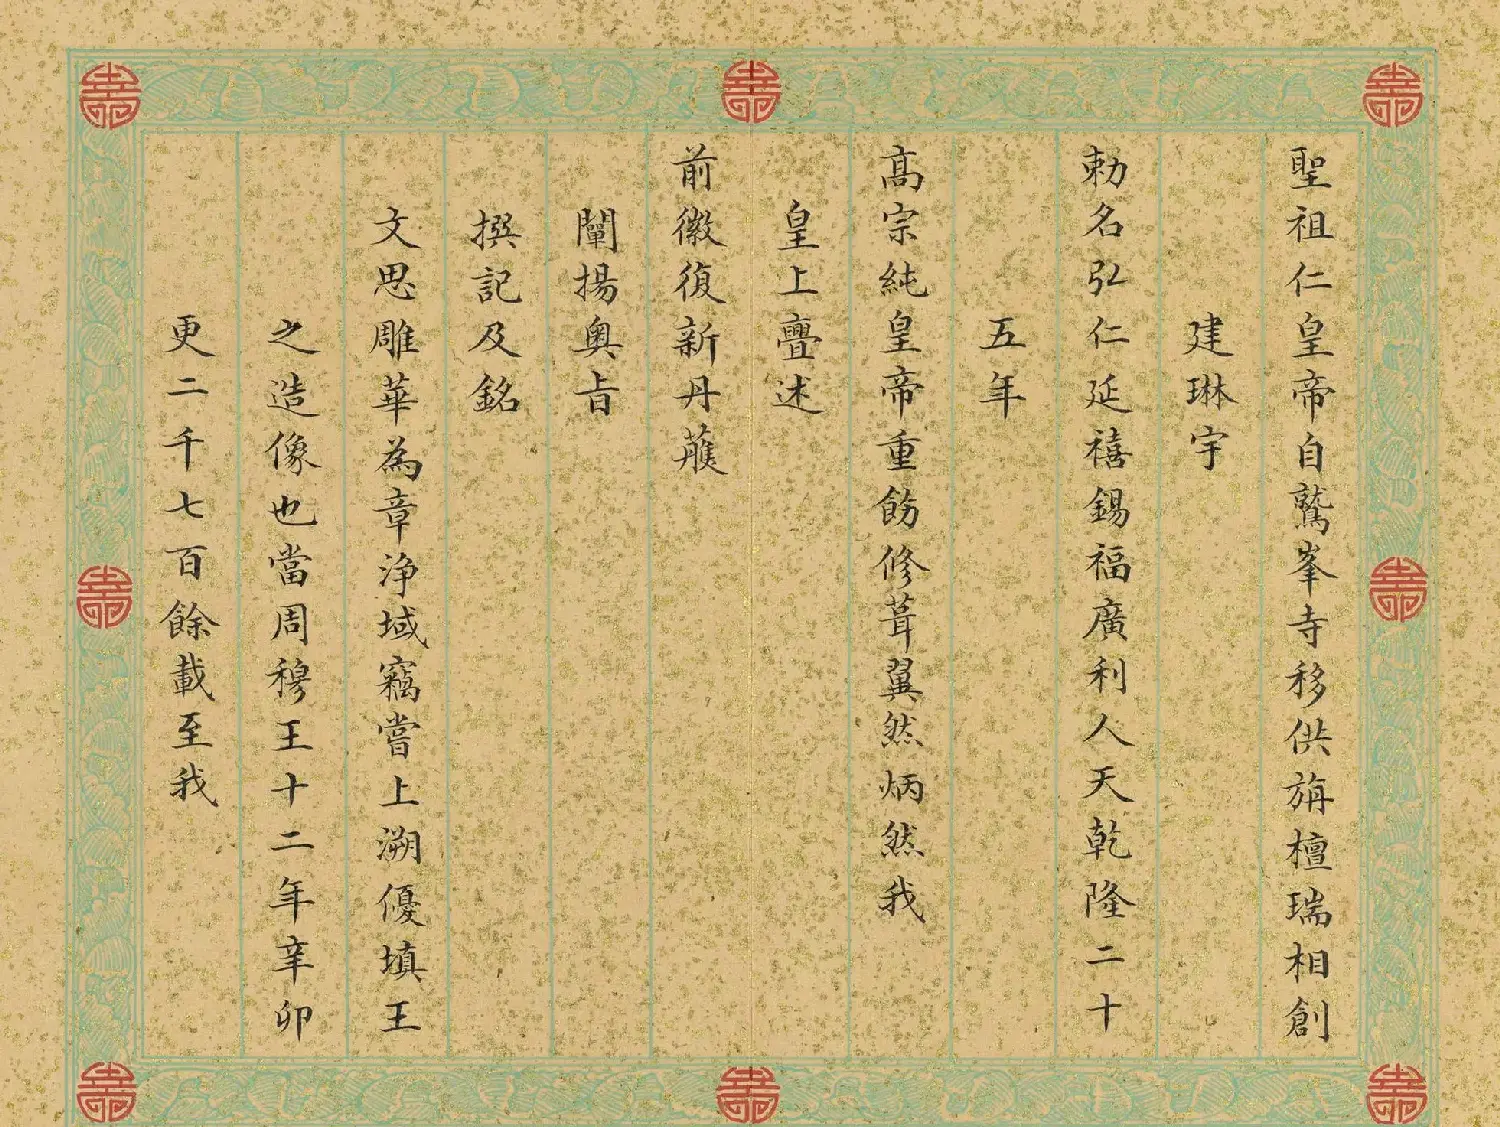 聖祖仁皇帝自鷲峯寺移供旃檀瑞相創
建琳宇
勅名弘仁延禧錫福廣利人天乾隆二十
五年
高宗純皇帝重飭修葺翼然炳然我
皇上亹述
前徽復新丹雘
闡揚奧旨
撰記及銘
文思雕華為章淨域竊嘗上溯優填王
之造像也當周穆王十二年辛卯
更二千七百餘載至我